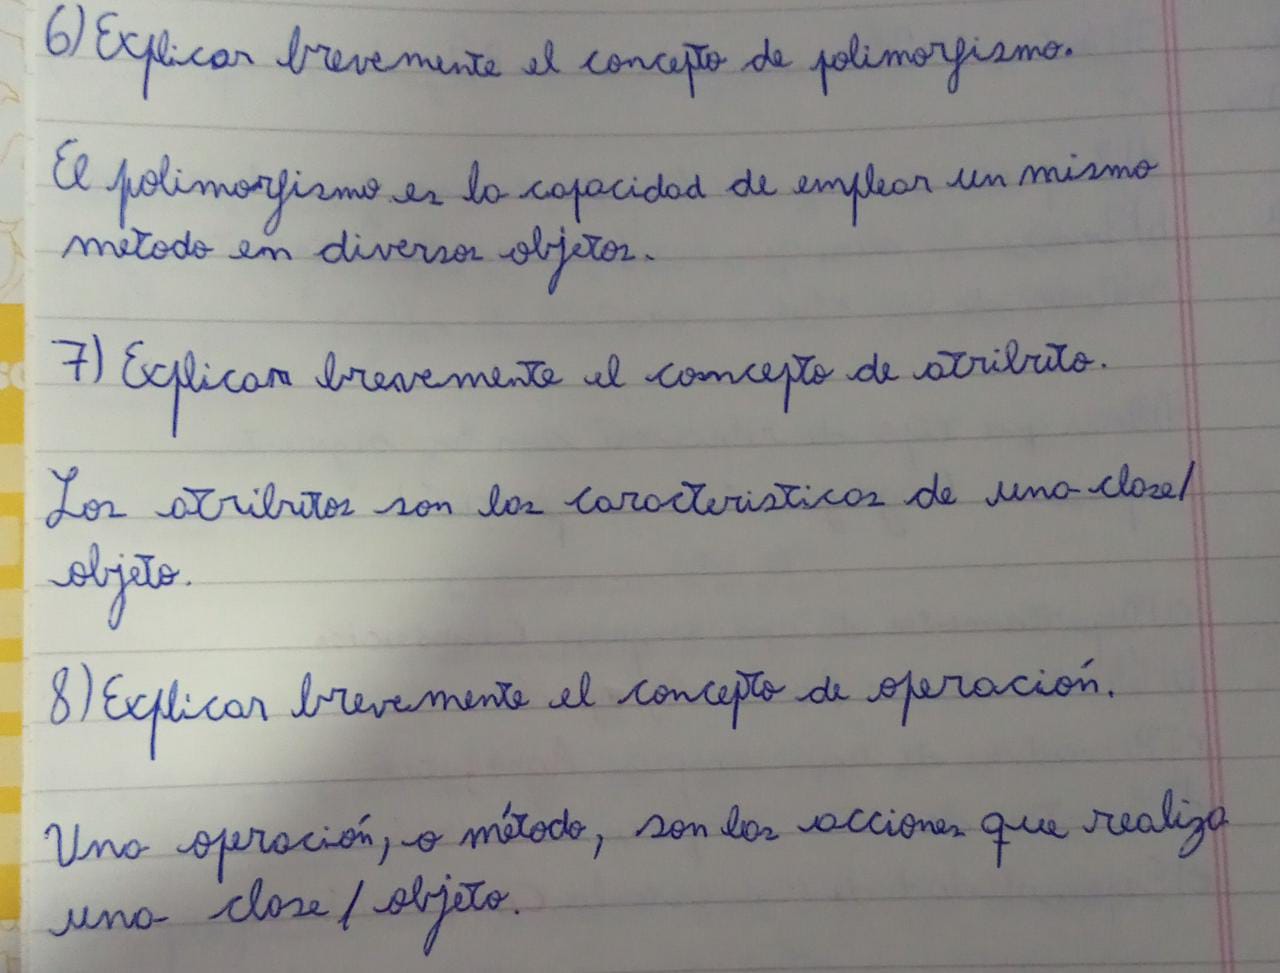 6) Explicar brevemente el concepto de polimorfismo.
El polimorfismo es la capacidad de emplear un mismo
método en diversos objetos.
7) Explicar brevemente el concepto de atributo.
Los atributos son las caracteristicas de una clase/
objeto.
8) Explicar brevemente el concepto de operación.
Una operación, o método, son las acciones que realiza
una clase / objeto.